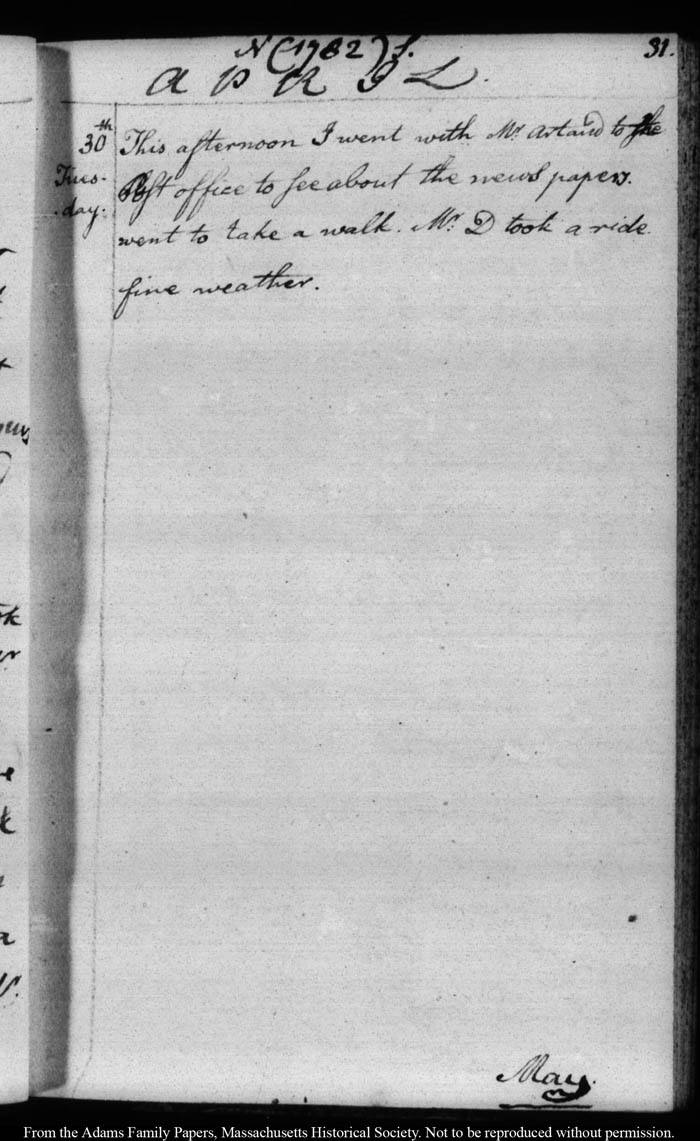 N (1782) S.
31.
APRIL.
30th
Tues-
-day.
This afternoon I went with Mr. Artaud to the
Post office to see about the news papers.
went to take a walk. Mr. D took a ride
fine weather.
May.
From the Adams Family Papers, Massachusetts Historical Society. Not to be reproduced without permission.